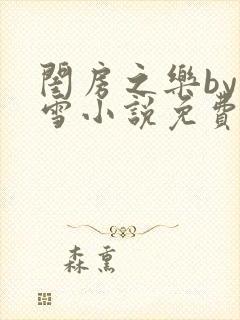 閨房之樂by
雪小說免費
森熏